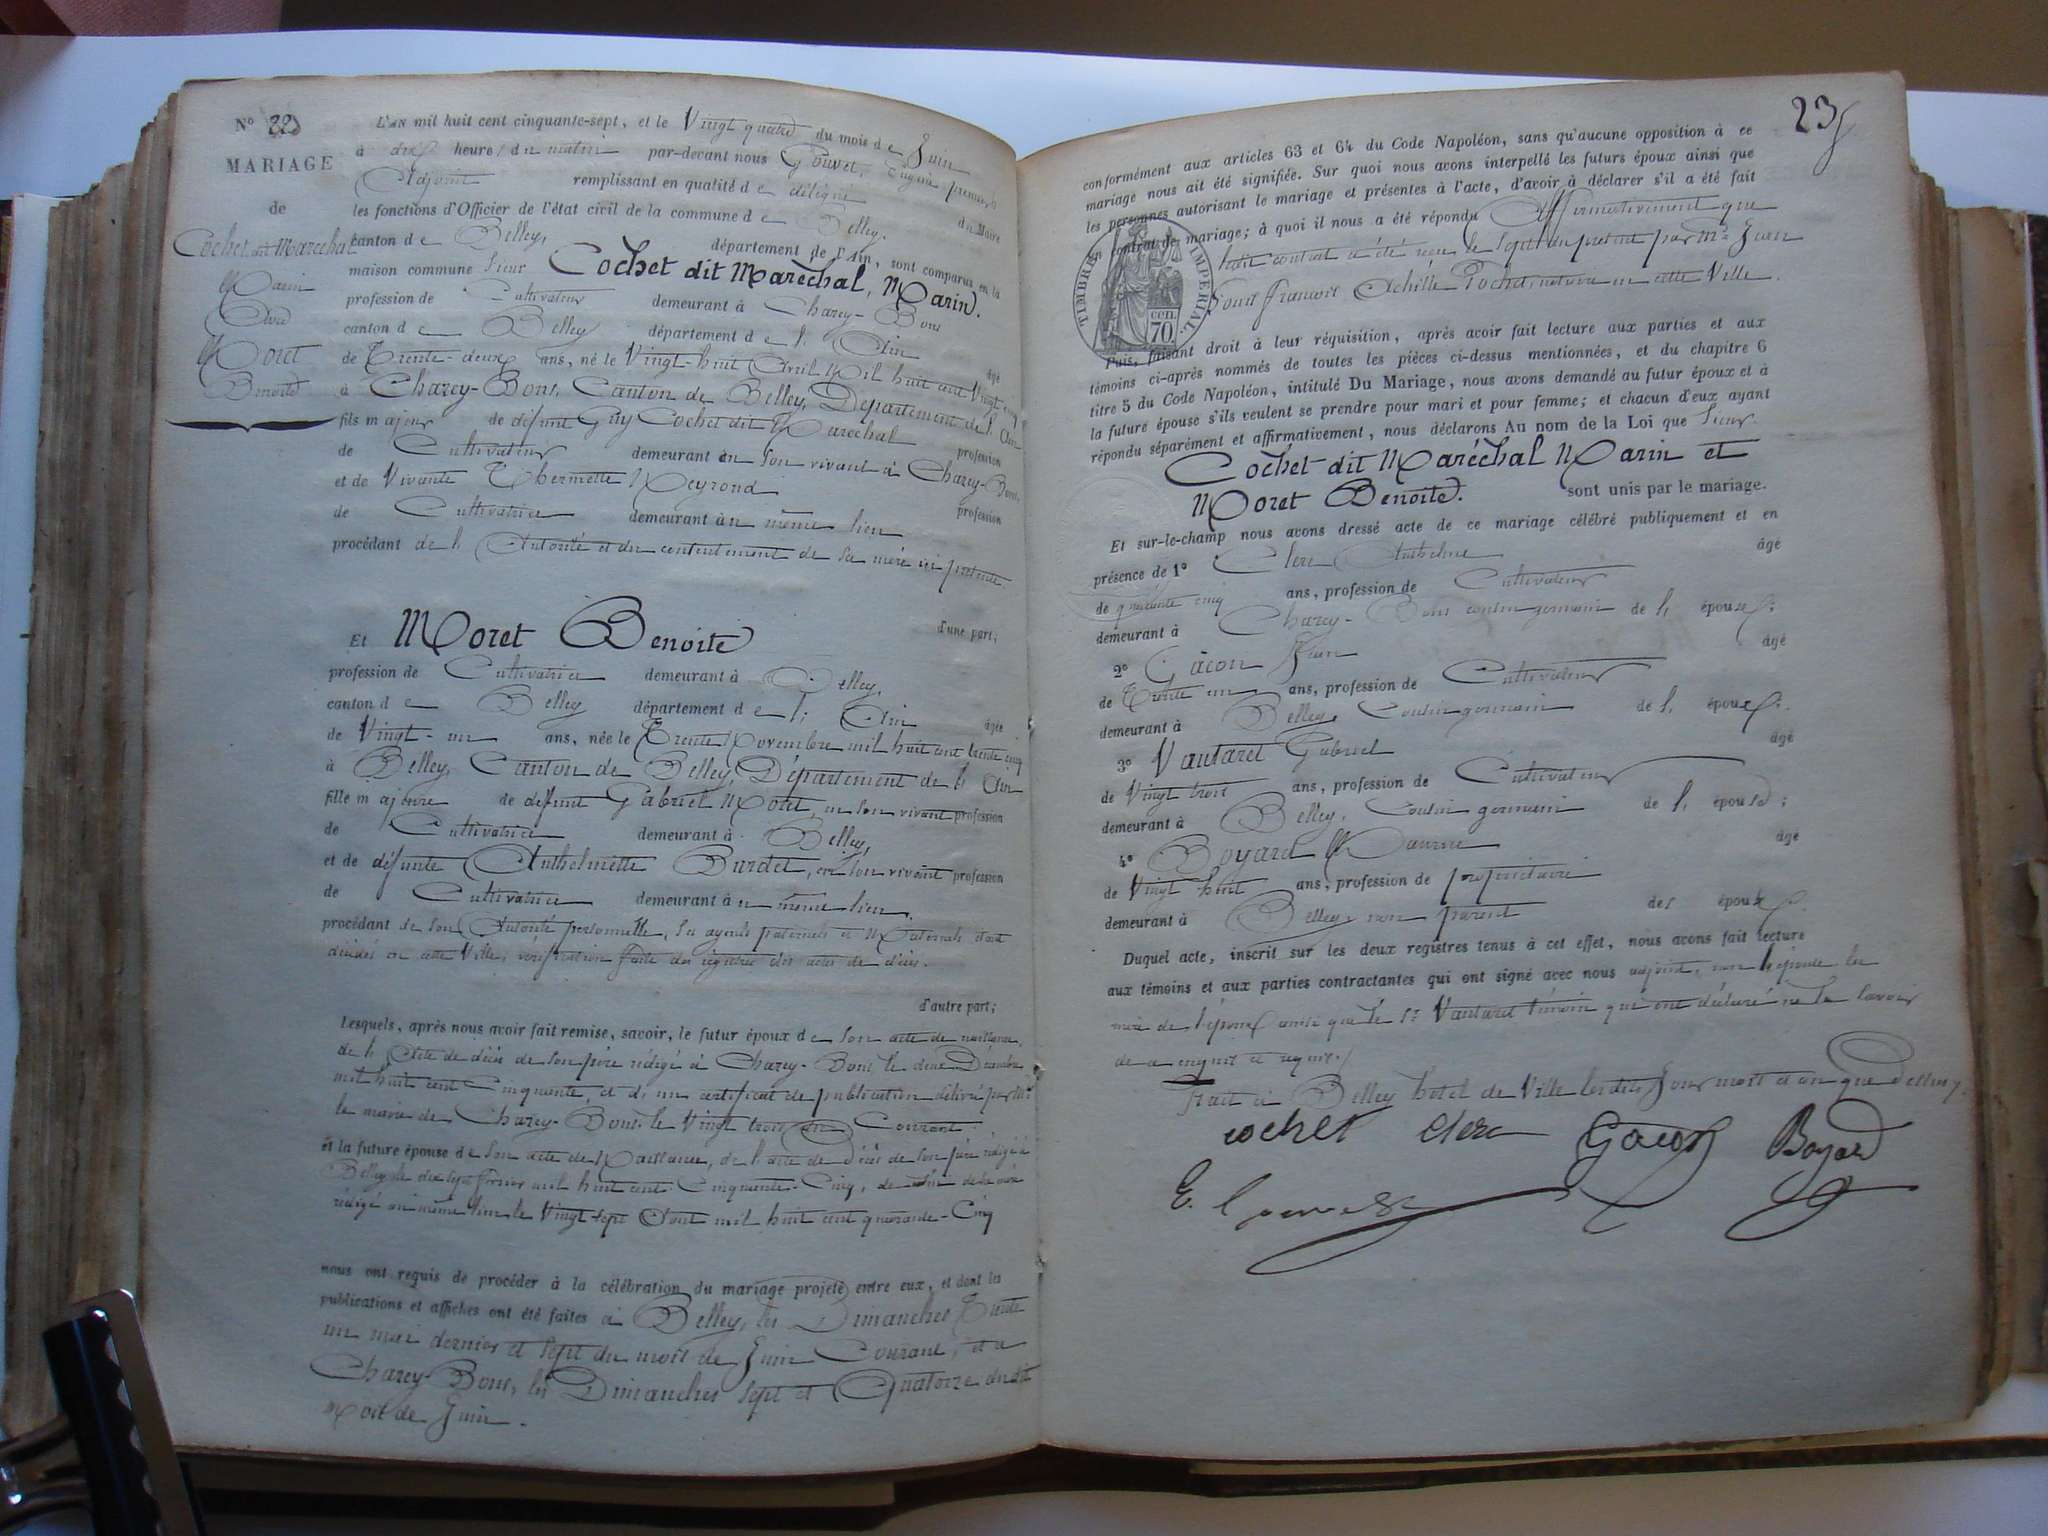 N° 22
MARIAGE
de
Cochet dit Maréchal
Marin
Avec
Moret
Benoite
L'AN mil huit cent cinquante-sept, et le Vingt quatre du mois de Juin
à dix heures du matin par-devant nous Gouvet, Eugène premier
Adjoint remplissant en qualité de délégué du Maire
les fonctions d'Officier de l'état civil de la commune de Belley.
canton de Belley, département de l'Ain, sont comparus en la
maison commune Sieur Cochet dit Maréchal, Marin.
profession de Cultivateur demeurant à Charey-Bons
canton de Belley département de l' Ain âgé
de Trente-deux ans, né le Vingt-huit Avril Mil huit cent Vingt cinq
à Charey-Bons, Canton de Belley, Département de l'Ain
fils majeur de défunt Guy Cochet dit Maréchal profession
de Cultivateur demeurant en son vivant à Charey-Bons,
et de Vivante Thermette Meyrond profession
de Cultivatrice demeurant au même lieu
procédant de l'Autorité et du consentement de sa mère ici présente
d'une part;
Et Moret Benoite
profession de Cultivatrice demeurant à Belley,
canton de Belley département de l' Ain âgée
de Vingt-un ans, née le Trente Novembre mil huit cent trente cinq
à Belley, Canton de Belley, Département de l'Ain
fille majeure de défunt Gabriel Moret, en son vivant profession
de Cultivatrice demeurant à Belley,
et de défunte Anthelmette Burdet, en son vivant profession
de Cultivatrice demeurant au même lieu,
procédant de son Autorité personnelle, ses ayeuls paternels et Maternels étant
décédés en cette Ville, vérification faite des registres des actes de décès.
d'autre part;
Lesquels, après nous avoir fait remise, savoir, le futur époux de son acte de naissance,
de l'Acte de décès de son père rédigé à Charey-Bons, le deux Décembre
mil huit cent Cinquante, et d'un certificat de publication délivré par Mr
le maire de Charey-Bons le Vingt trois du Courant.
et la future épouse de son acte de Naissance, de l'acte de Décès de son père rédigé à
Belley le dix sept février mil huit cent Cinquante-Cinq, de celui de sa mère
rédigé au même lieu le Vingt sept Aout mil huit cent quarante-Cinq
nous ont requis de procéder à la célébration du mariage projeté entre eux, et dont les
publications et affiches ont été faites à Belley, les Dimanches Trente
un mai dernier et sept du mois de Juin Courant, et à
Charey-Bons, les Dimanches sept et Quatorze du dit
mois de Juin.
23
conformément aux articles 63 et 64 du Code Napoléon, sans qu'aucune opposition à ce
mariage nous ait été signifiée. Sur quoi nous avons interpellé les futurs époux ainsi que
les personnes autorisant le mariage et présentes à l'acte, d'avoir à déclarer s'il a été fait
un contrat de mariage; à quoi il nous a été répondu Affirmativement que
ledit contrat a été reçu le sept du présent par Me Jean
Louis François Achille Pochet, notaire en cette Ville.
TIMBRE IMPÉRIAL.
70 cen.
Puis, faisant droit à leur réquisition, après avoir fait lecture aux parties et aux
témoins ci-après nommés de toutes les pièces ci-dessus mentionnées, et du chapitre 6
titre 5 du Code Napoléon, intitulé Du Mariage, nous avons demandé au futur époux et à
la future épouse s'ils veulent se prendre pour mari et pour femme; et chacun d'eux ayant
répondu séparément et affirmativement, nous déclarons Au nom de la Loi que Sieur
Cochet dit Maréchal Marin et
Moret Benoite. sont unis par le mariage.
Et sur-le-champ nous avons dressé acte de ce mariage célébré publiquement et en
présence de 1° Clerc Anthelme âgé
de quarante cinq ans, profession de Cultivateur
demeurant à Charey-Bons cousin germain de l' époux;
2° Gâcon Jean âgé
de Trente un ans, profession de Cultivateur
demeurant à Belley, Cousin germain de l' époux;
3° Vautaret Gabriel âgé
de Vingt trois ans, profession de Cultivateur
demeurant à Belley, Cousin germain de l' épouse;
4° Boyard Maurice âgé
de Vingt huit ans, profession de propriétaire
demeurant à Belley, non parent des époux.
Duquel acte, inscrit sur les deux registres tenus à cet effet, nous avons fait lecture
aux témoins et aux parties contractantes qui ont signé avec nous adjoint, non l'épouse la
mère de l'époux ainsi que le Sr Vautaret témoin qui ont déclaré ne le savoir
de ce enquis et requis.
Fait à Belley hôtel de Ville lesdits Jour mois et an que dessus.
cochet clerc Gacon Boyard
E. Gouvet